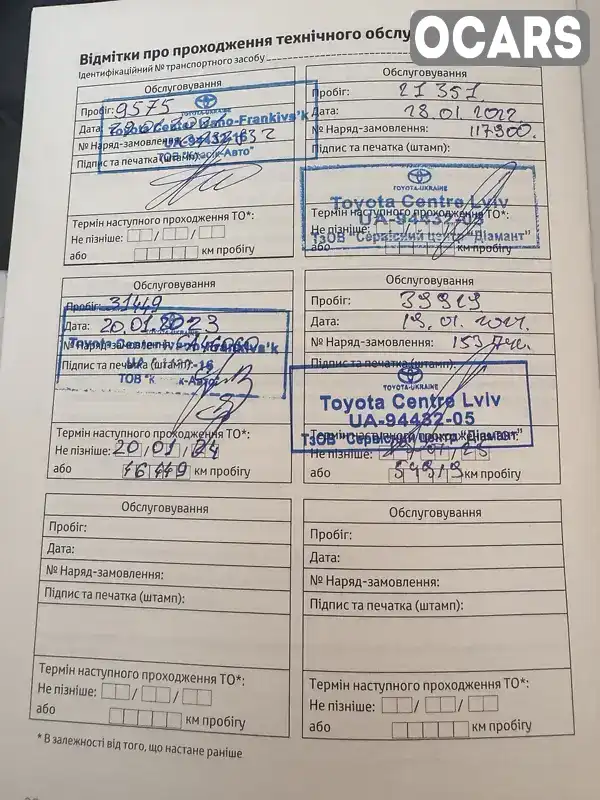 OCARS
Відмітки про проходження технічного обслу
Ідентифікаційний № транспортного засобу
Обслуговування
Пробіг: 9575
Дата:
№ Наряд-замовлення:
Підпис та печатка (штамп):
TOYOTA-UKRAINE
Toyota Center Ivano-Frankivs'k
UA-94432-16
ТОВ "Класік-Авто"
Термін наступного проходження ТО*:
Не пізніше:
або км пробігу
Обслуговування
Пробіг: 21 351
Дата: 28.01.2022
№ Наряд-замовлення: 117900.
Підпис та печатка (штамп):
TOYOTA-UKRAINE
Toyota Centre Lviv
UA-94432-05
ТзОВ "Сервісний центр "Діамант"
Термін наступного проходження ТО*:
Не пізніше:
або км пробігу
Обслуговування
Пробіг: 31449
Дата: 20.01.2023
№ Наряд-замовлення:
Підпис та печатка (штамп):
Toyota Center Ivano-Frankivs'k
ТОВ "К к-Авто"
Термін наступного проходження ТО*:
Не пізніше: 20/01/24
або 46449 км пробігу
Обслуговування
Пробіг: 39919
Дата: 19.01.2024.
№ Наряд-замовлення:
Підпис та печатка (штамп):
TOYOTA-UKRAINE
Toyota Centre Lviv
UA-94432-05
ТзОВ "Сервісний центр "Діамант"
Термін наступного проходження ТО*:
Не пізніше:
або км пробігу
Обслуговування
Пробіг:
Дата:
№ Наряд-замовлення:
Підпис та печатка (штамп):
Термін наступного проходження ТО*:
Не пізніше:
або км пробігу
Обслуговування
Пробіг:
Дата:
№ Наряд-замовлення:
Підпис та печатка (штамп):
Термін наступного проходження ТО*:
Не пізніше:
або км пробігу
* В залежності від того, що настане раніше